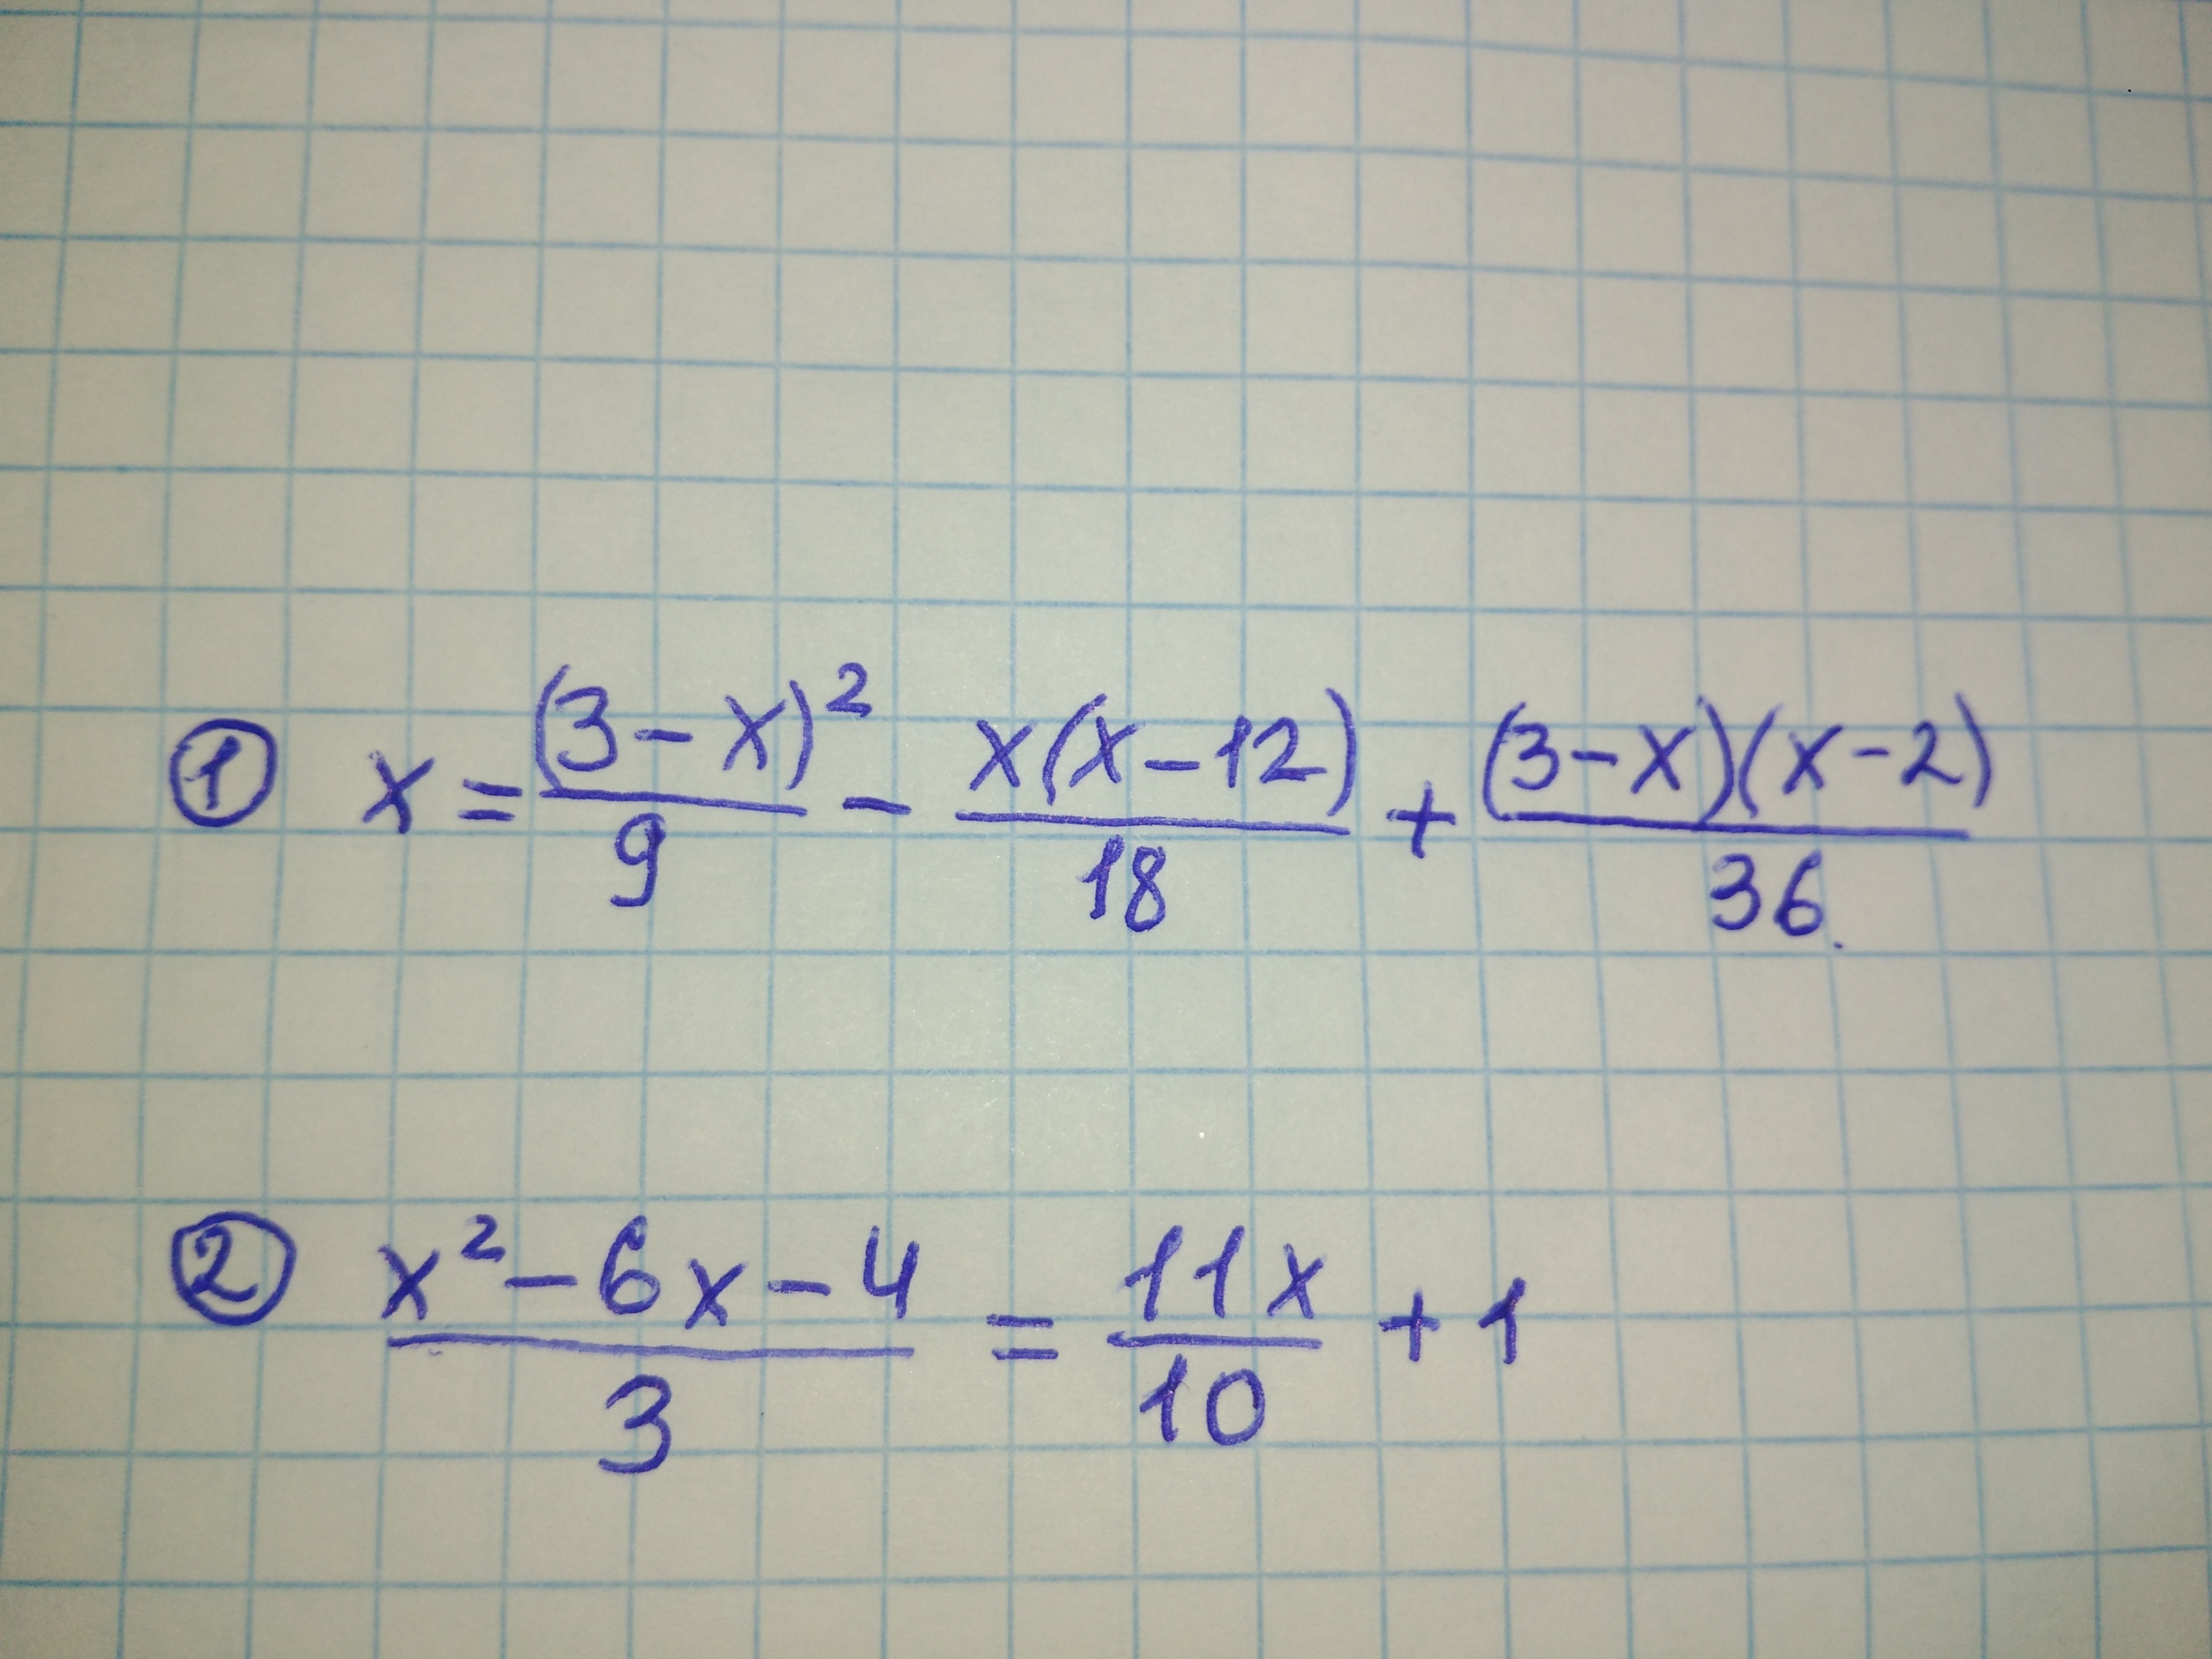 ① x = (3-x)²/9 - x(x-12)/18 + (3-x)(x-2)/36.
② x²-6x-4/3 = 11x/10 + 1